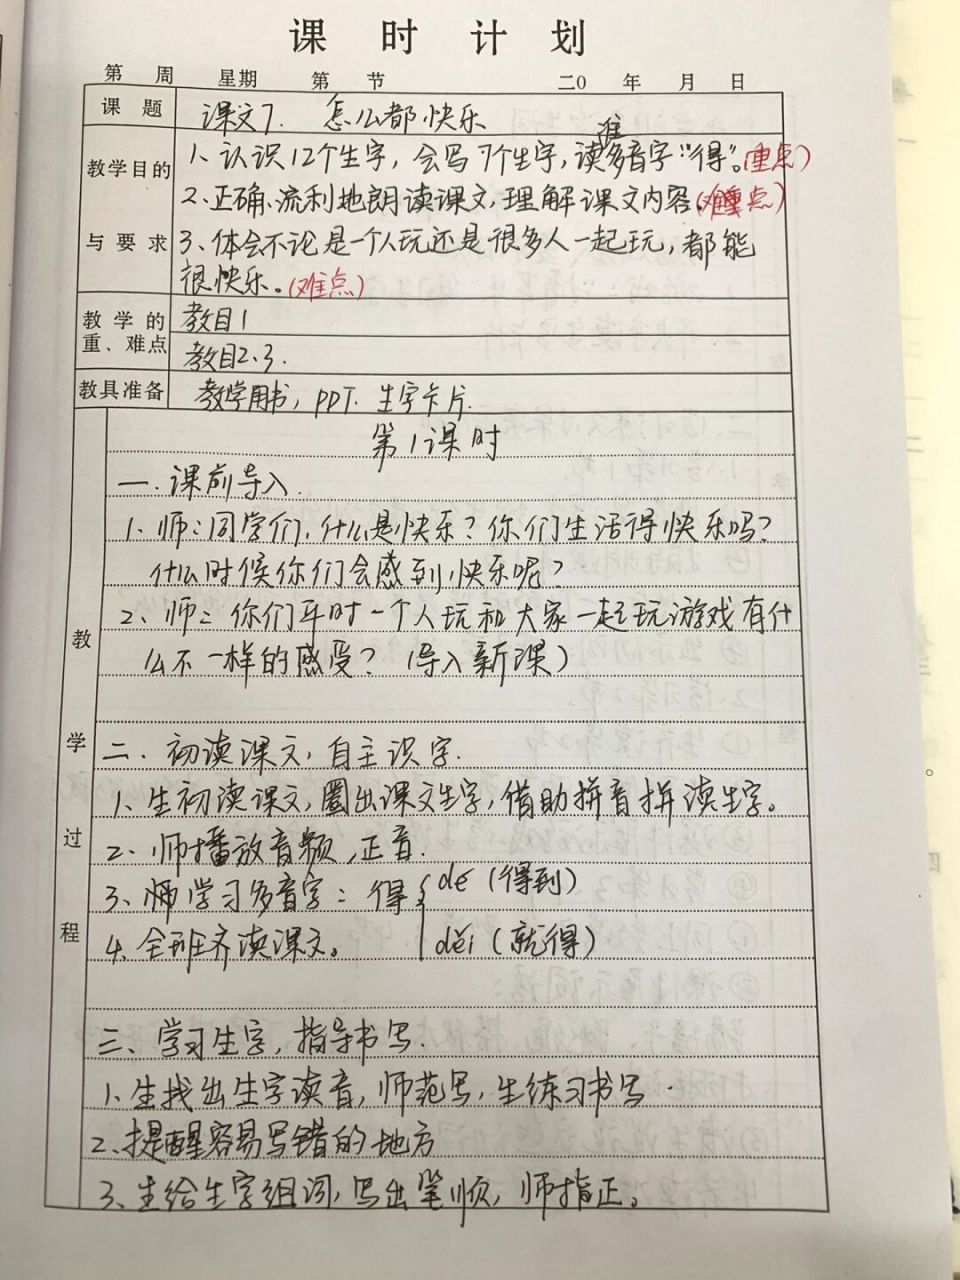 课时计划
第 周 星期 第 节 二0 年 月 日
课题 课文7. 怎么都快乐
教学目的与要求
1、认识12个生字，会写7个生字，读准多音字“得”。(重点)
2、正确、流利地朗读课文，理解课文内容。(难点)
3、体会不论是一个人玩还是很多人一起玩，都能
很快乐。(难点)
教学的重、难点
教目1
教目2、3.
教具准备 教学用书，PPT. 生字卡片.
教学过程
第1课时
一. 课前导入.
1、师：同学们，什么是快乐？你们生活得快乐吗？
什么时候你们会感到快乐呢？
2、师：你们平时一个人玩和大家一起玩游戏有什
么不一样的感受？（导入新课）
二. 初读课文，自主识字.
1、生初读课文，圈出课文生字，借助拼音拼读生字。
2、师播放音频，正音.
3、师学习多音字：得{dé（得到）
děi（就得）
4、全班齐读课文。
三、学习生字，指导书写.
1、生找出生字读音，师范写，生练习书写.
2、提醒容易写错的地方
3、生给生字组词，写出笔顺，师指正。